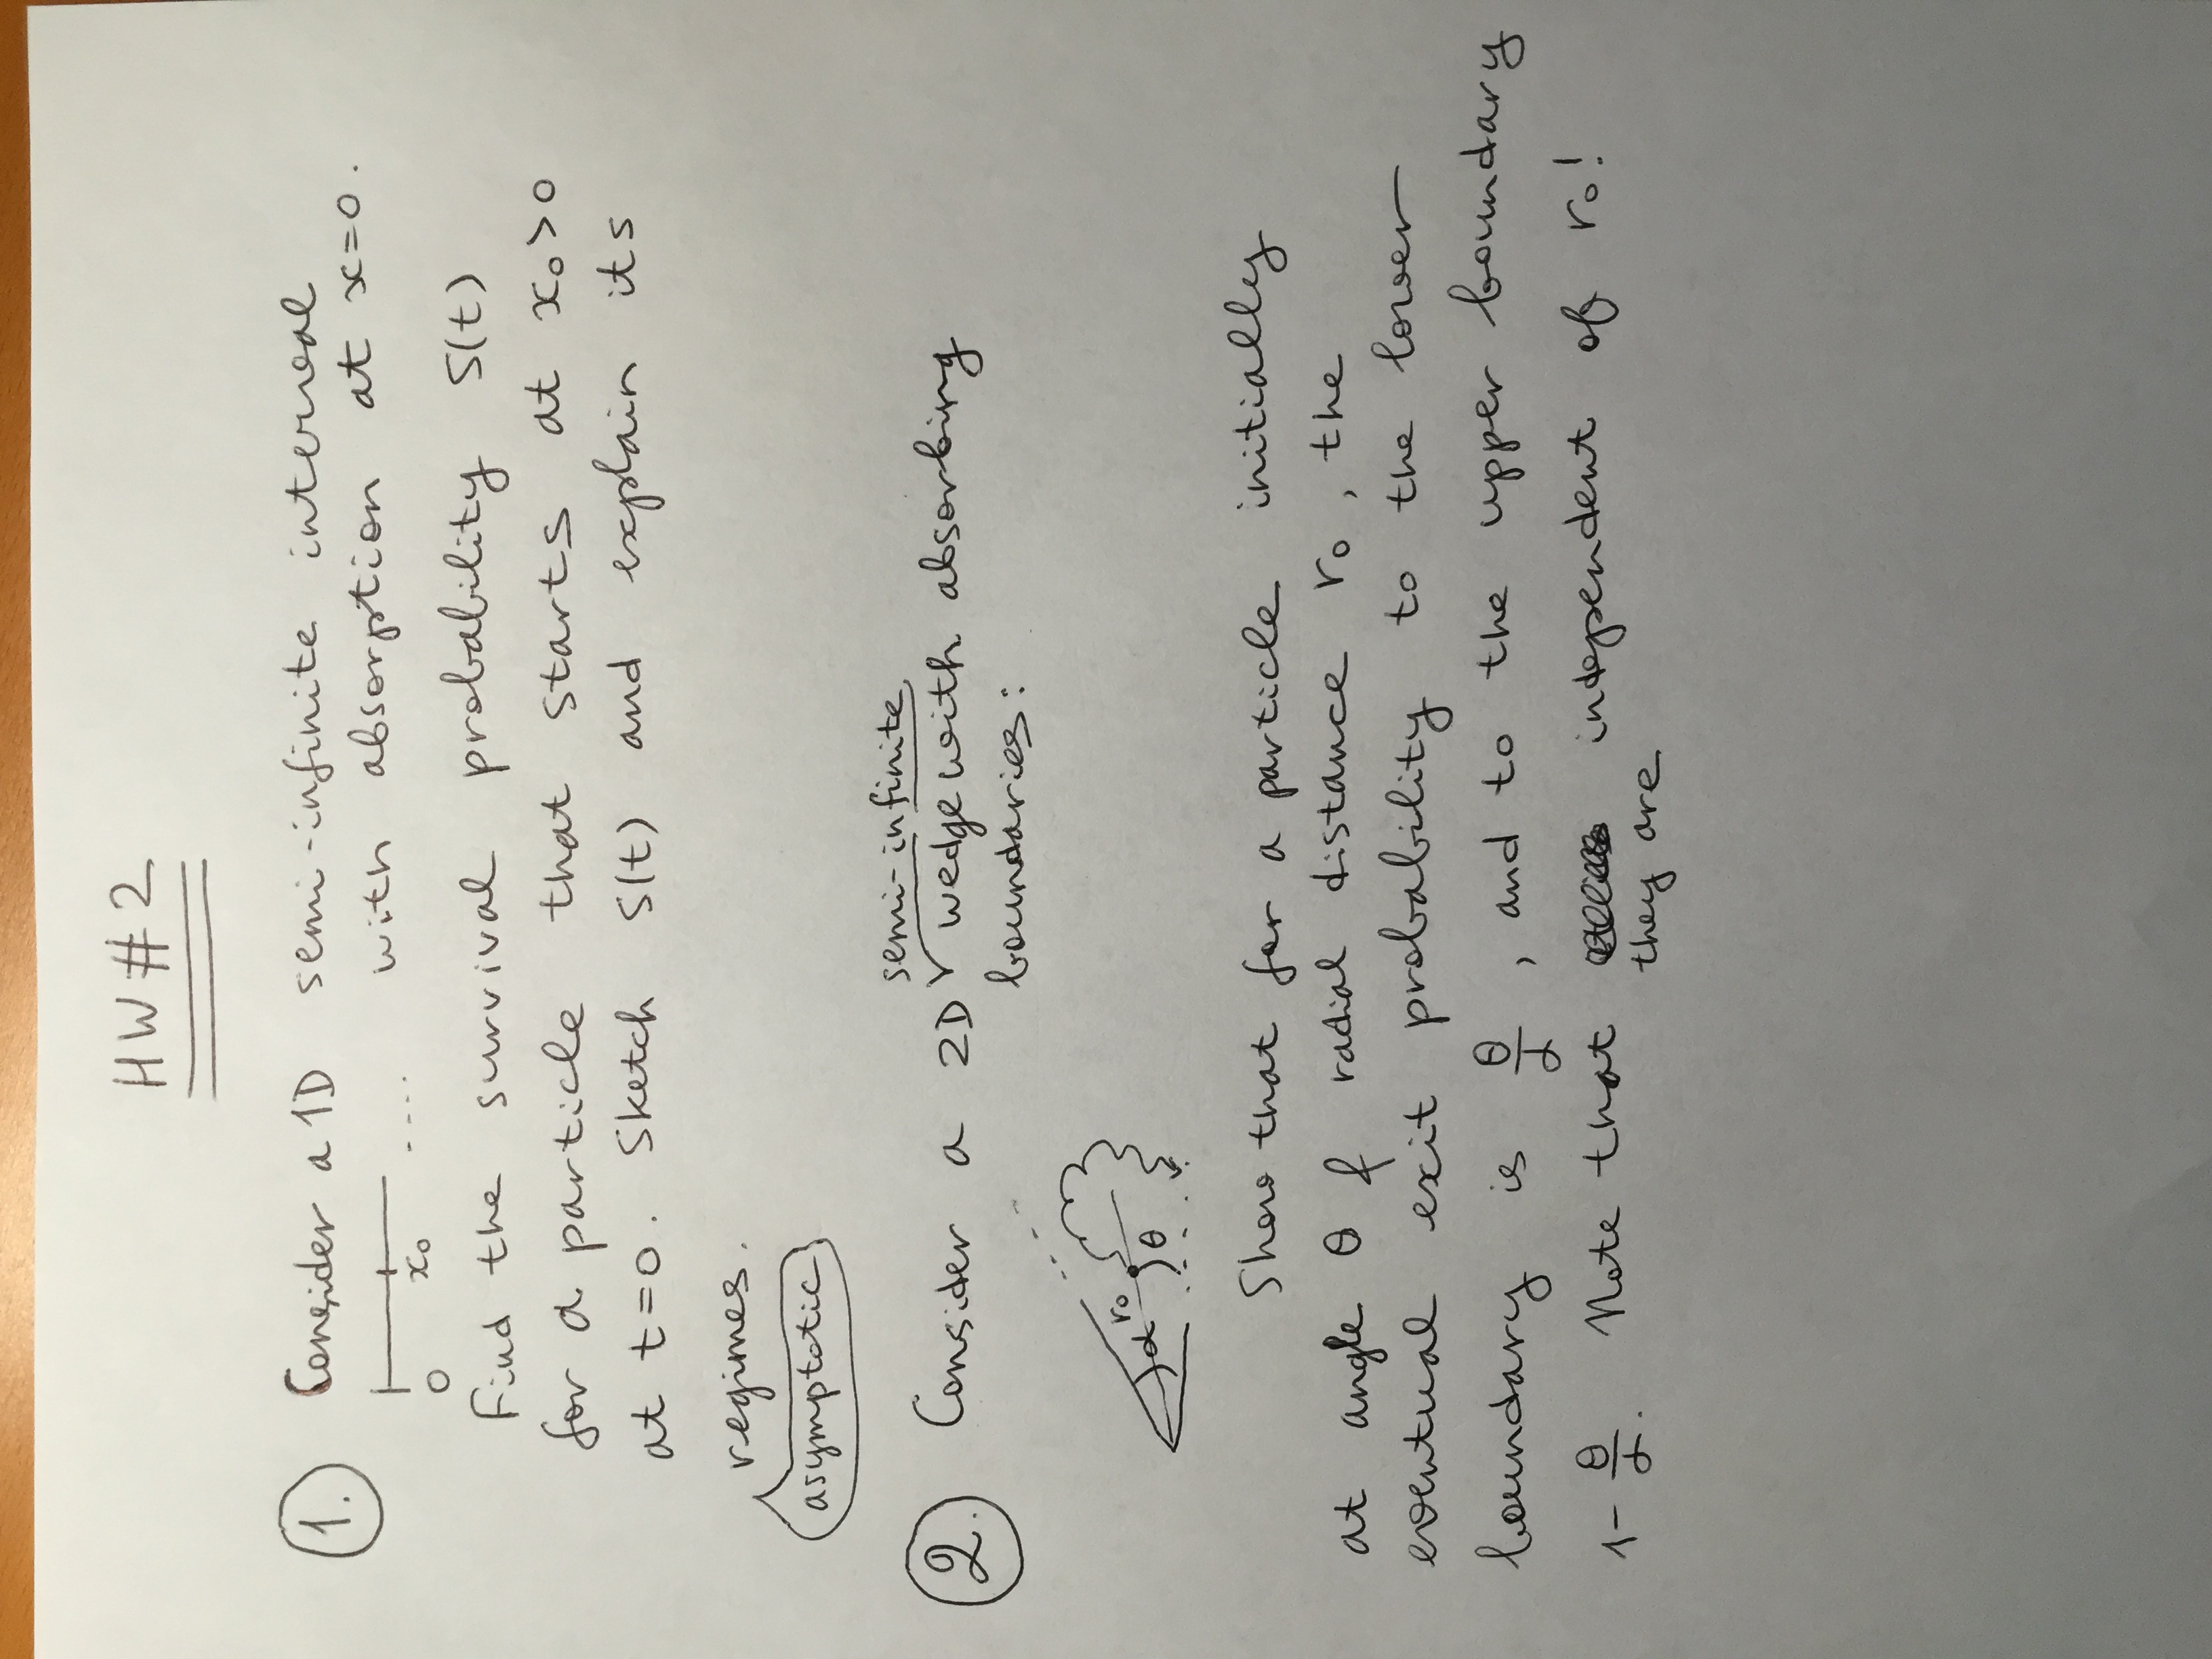 HW # 2
1. Consider a 1D semi-infinite interval
0 x₀ .... with absorption at x=0.
Find the survival probability S(t)
for a particle that starts at x₀>0
at t=0. Sketch S(t) and explain its
regimes.
asymptotic
semi-infinite
2. Consider a 2D wedge with absorbing
boundaries:
α r₀ θ
Show that for a particle initially
at angle θ & radial distance r₀, the
eventual exit probability to the lower
boundary is θ/α, and to the upper boundary
1-θ/α. Note that independent of r₀!
they are